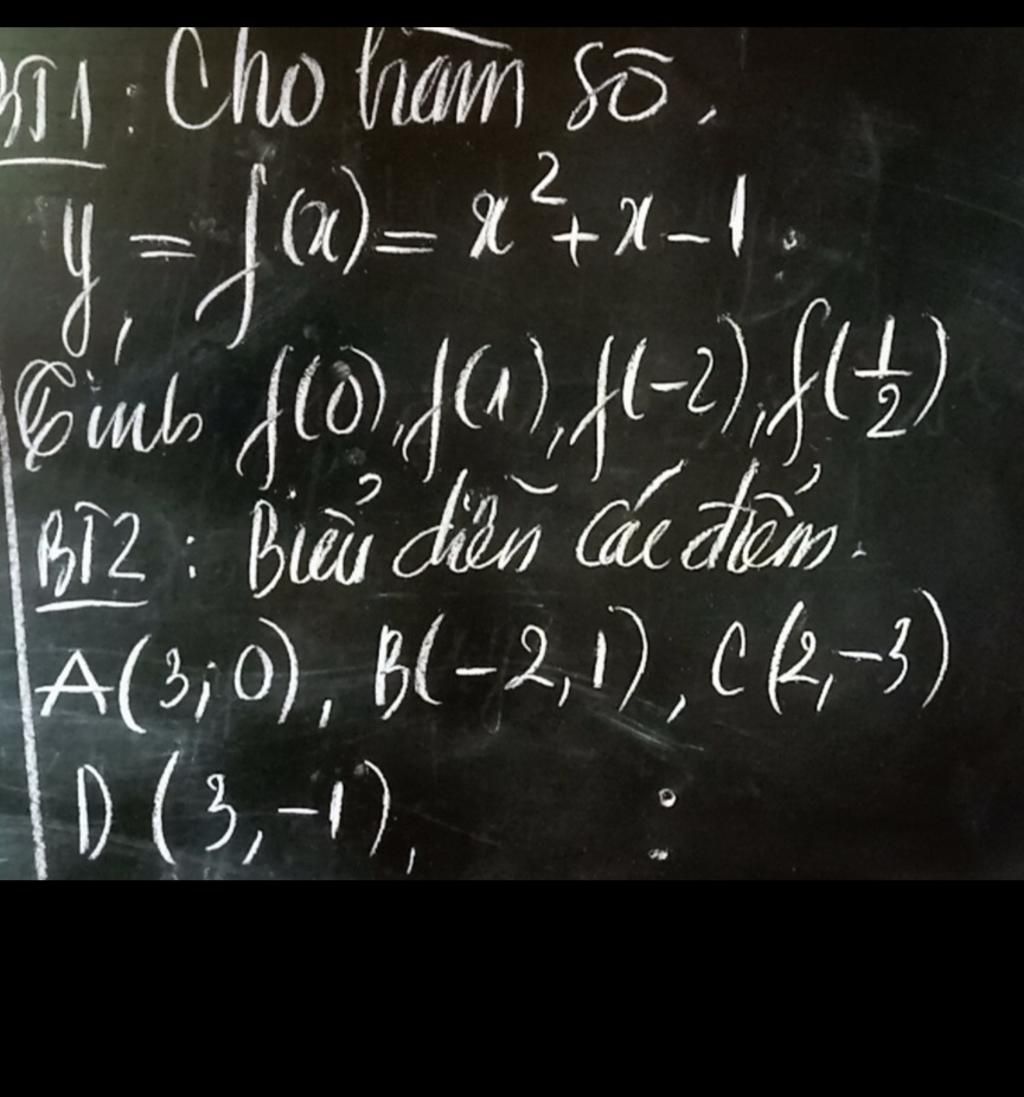 BT1: Cho hàm số.
y = f(x) = x² + x - 1.
Tính f(0), f(1), f(-2), f(1/2)
BT2: Biểu diễn các điểm.
A(3; 0), B(-2, 1), C(2, -3)
D(3, -1),